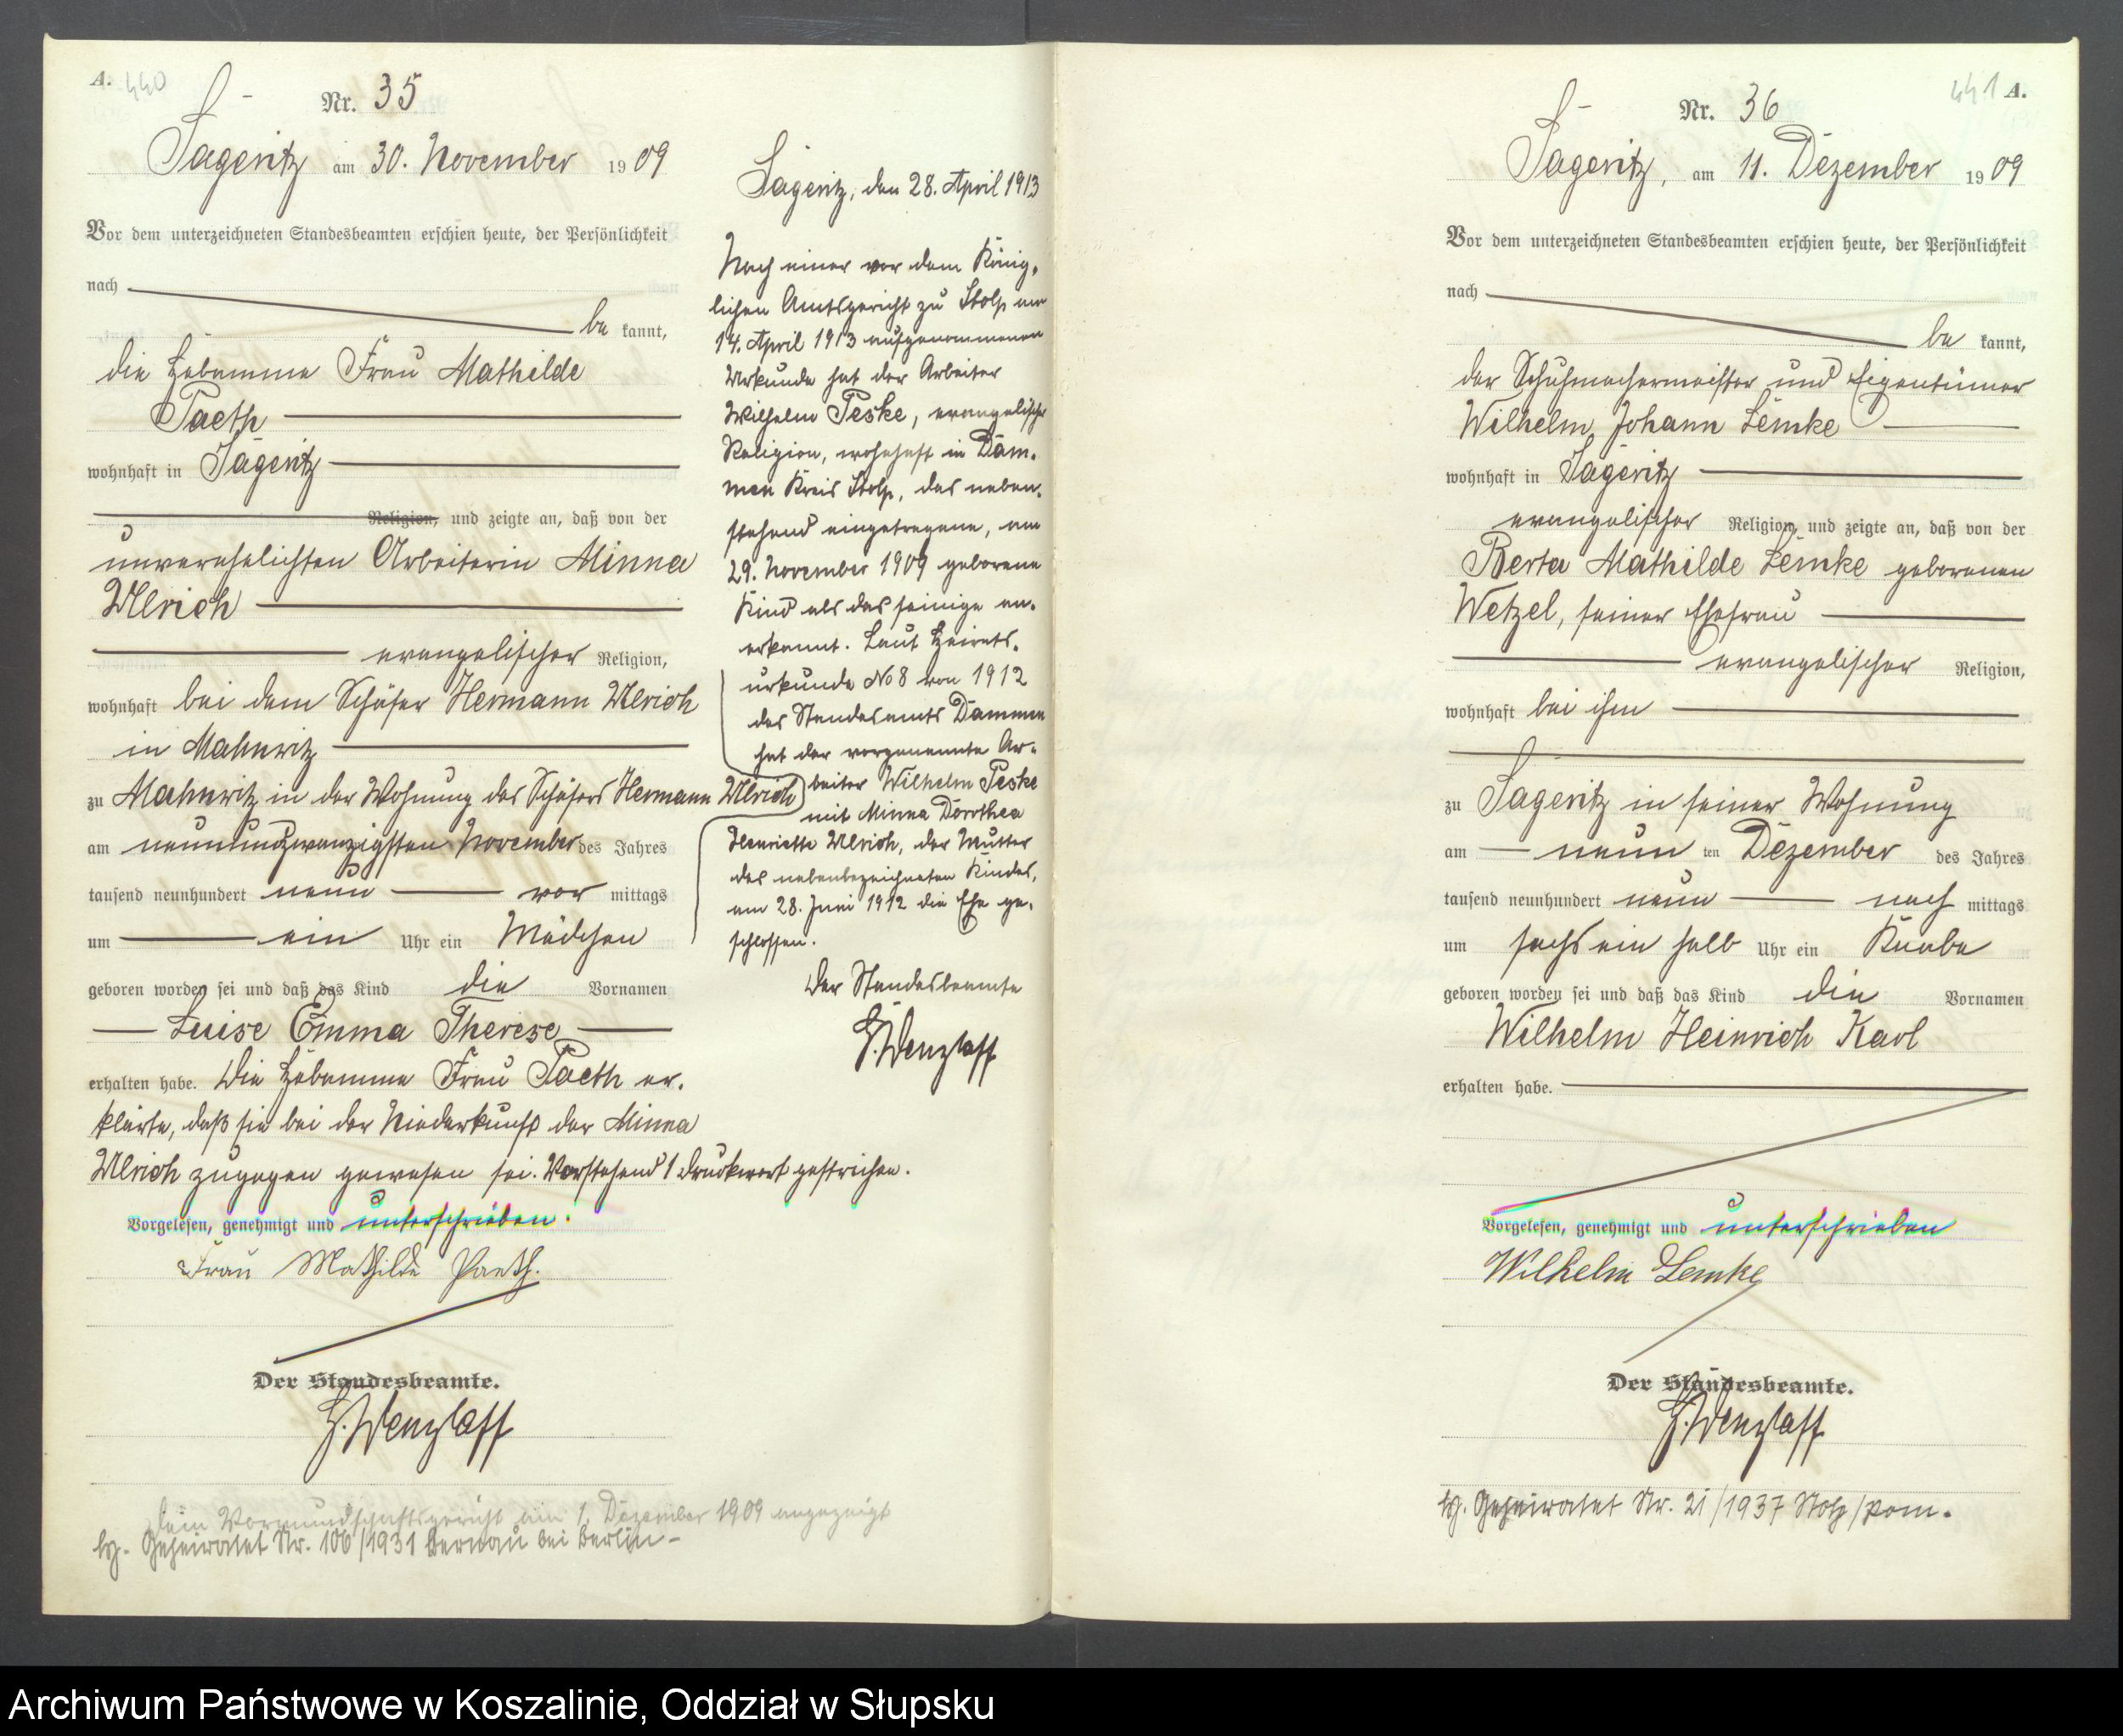 A. 440
Nr. 35
Sageritz am 30. November 1909
Vor dem unterzeichneten Standesbeamten erschien heute, der Persönlichkeit
nach
be kannt,
die Hebamme Frau Mathilde
Paeth
wohnhaft in Sageritz
Religion, und zeigte an, daß von der
unverehelichten Arbeiterin Minna
Ulrich
evangelischer Religion,
wohnhaft bei dem Schäfer Hermann Ulrich
in Mahnwitz
zu Mahnwitz in der Wohnung des Schäfers Hermann Ulrich
am neunundzwanzigsten November des Jahres
tausend neunhundert neun vor mittags
um ein Uhr ein Mädchen
geboren worden sei und daß das Kind die Vornamen
Luise Emma Therese
erhalten habe. Die Hebamme Frau Paeth er-
klärte, daß sie bei der Niederkunft der Minna
Ulrich zugegen gewesen sei. Vorstehend 1 Druckwort gestrichen.
Vorgelesen, genehmigt und unterschrieben.
Frau Mathilde Paeth.
Der Standesbeamte.
H. Wenzlaff
Dem Vormundschaftsgericht am 1. Dezember 1909 angezeigt
Geheiratet Nr. 106/1931 Bernau bei Berlin-
Sageritz, den 28. April 1913
Nach einer vor dem König-
lichen Amtsgericht zu Stolp am
14. April 1913 aufgenommenen
Urkunde hat der Arbeiter
Wilhelm Peske, evangelischer
Religion, wohnhaft in Dam-
men Kreis Stolp, das neben-
stehend eingetragene, am
29. November 1909 geborene
Kind als das seinige an-
erkannt. Laut Heirats-
urkunde No 8 von 1912
des Standesamts Dammen
hat der vorgenannte Ar-
beiter Wilhelm Peske
mit Minna Dorothea
Henriette Ulrich, der Mutter
des nebenbezeichneten Kindes,
am 28. Juni 1912 die Ehe ge-
schlossen.
Der Standesbeamte
H. Wenzlaff
441 A.
Nr. 36
Sageritz, am 11. Dezember 1909
Vor dem unterzeichneten Standesbeamten erschien heute, der Persönlichkeit
nach
be kannt,
der Schuhmachermeister und Eigentümer
Wilhelm Johann Lemke
wohnhaft in Sageritz
evangelischer Religion, und zeigte an, daß von der
Berta Mathilde Lemke geborenen
Wetzel, seiner Ehefrau
evangelischer Religion,
wohnhaft bei ihm
zu Sageritz in seiner Wohnung
am neun ten Dezember des Jahres
tausend neunhundert neun nach mittags
um sechs ein halb Uhr ein Knabe
geboren worden sei und daß das Kind die Vornamen
Wilhelm Heinrich Karl
erhalten habe.
Vorgelesen, genehmigt und unterschrieben
Wilhelm Lemke
Der Standesbeamte.
H. Wenzlaff
Geheiratet Nr. 21/1937 Stolp/Pom.
Archiwum Państwowe w Koszalinie, Oddział w Słupsku